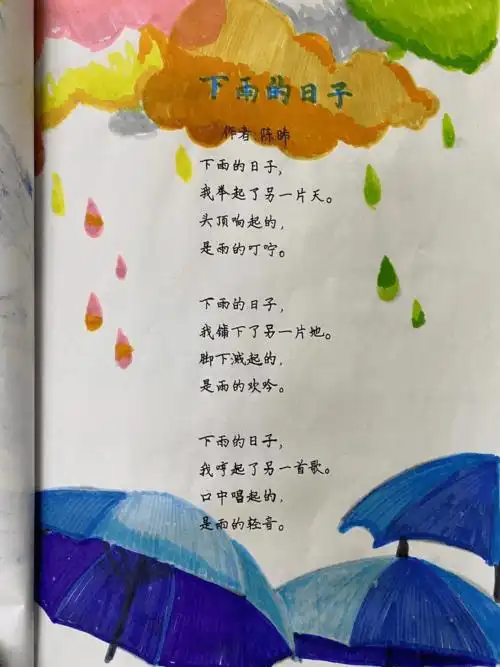 下雨的日子
作者 陈晞
下雨的日子，
我举起了另一片天。
头顶响起的，
是雨的叮咛。
下雨的日子，
我铺下了另一片地。
脚下溅起的，
是雨的欢吟。
下雨的日子，
我哼起了另一首歌。
口中唱起的，
是雨的轻音。